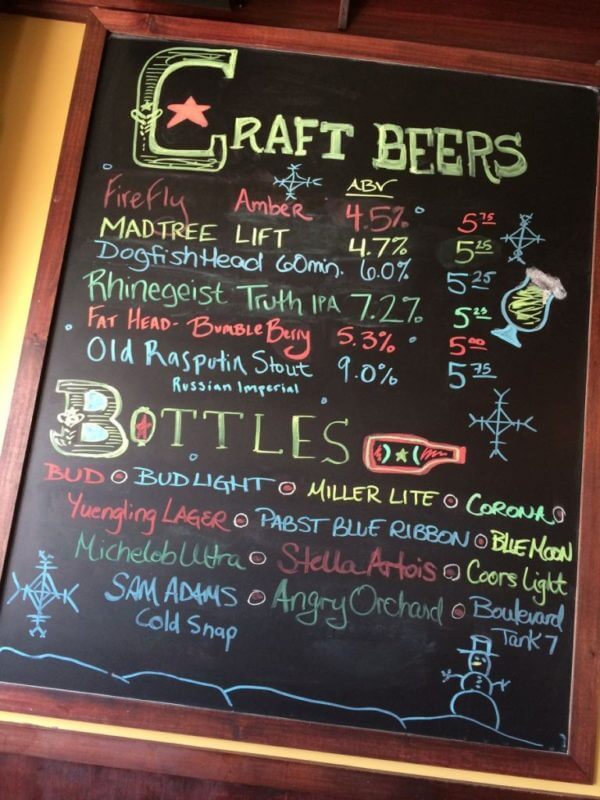 CRAFT BEERS
ABV
FireFly Amber 4.5% 5 75
MADTREE LIFT 4.7% 5 25
Dogfish Head 60min. 6.0% 5 25
Rhinegeist Truth IPA 7.2% 5 25
FAT HEAD - BumbleBerry 5.3% 5 00
Old Rasputin Stout 9.0% 5 75
Russian Imperial
BOTTLES
BUD BUD LIGHT MILLER LITE CORONA
Yuengling LAGER PABST BLUE RIBBON BLUE MOON
Michelob Ultra Stella Artois Coors Light
SAM ADAMS Angry Orchard Boulevard
Cold Snap Tank 7